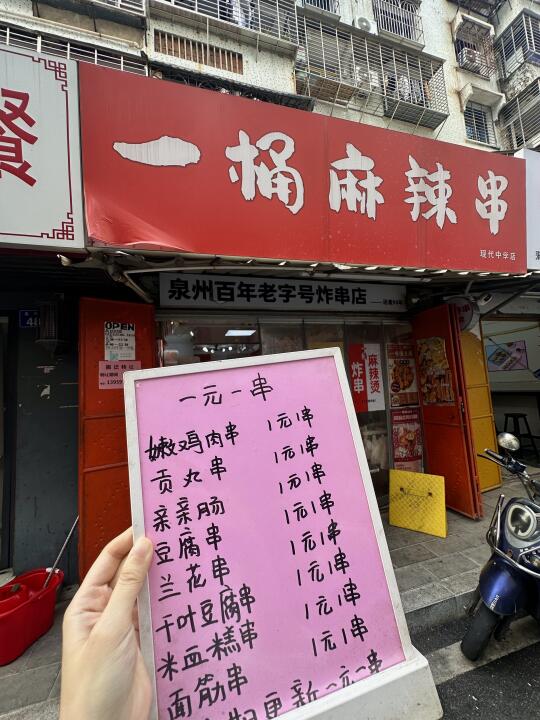 餐
一桶麻辣串
现代中学店
泉州百年老字号炸串店
OPEN
炸串
麻辣烫
一元一串
嫩鸡肉串 1元1串
贡丸串 1元1串
亲亲肠 1元1串
豆腐串 1元1串
兰花串 1元1串
千叶豆腐串 1元1串
米血糕串 1元1串
面筋串 1元1串
更新一元一串